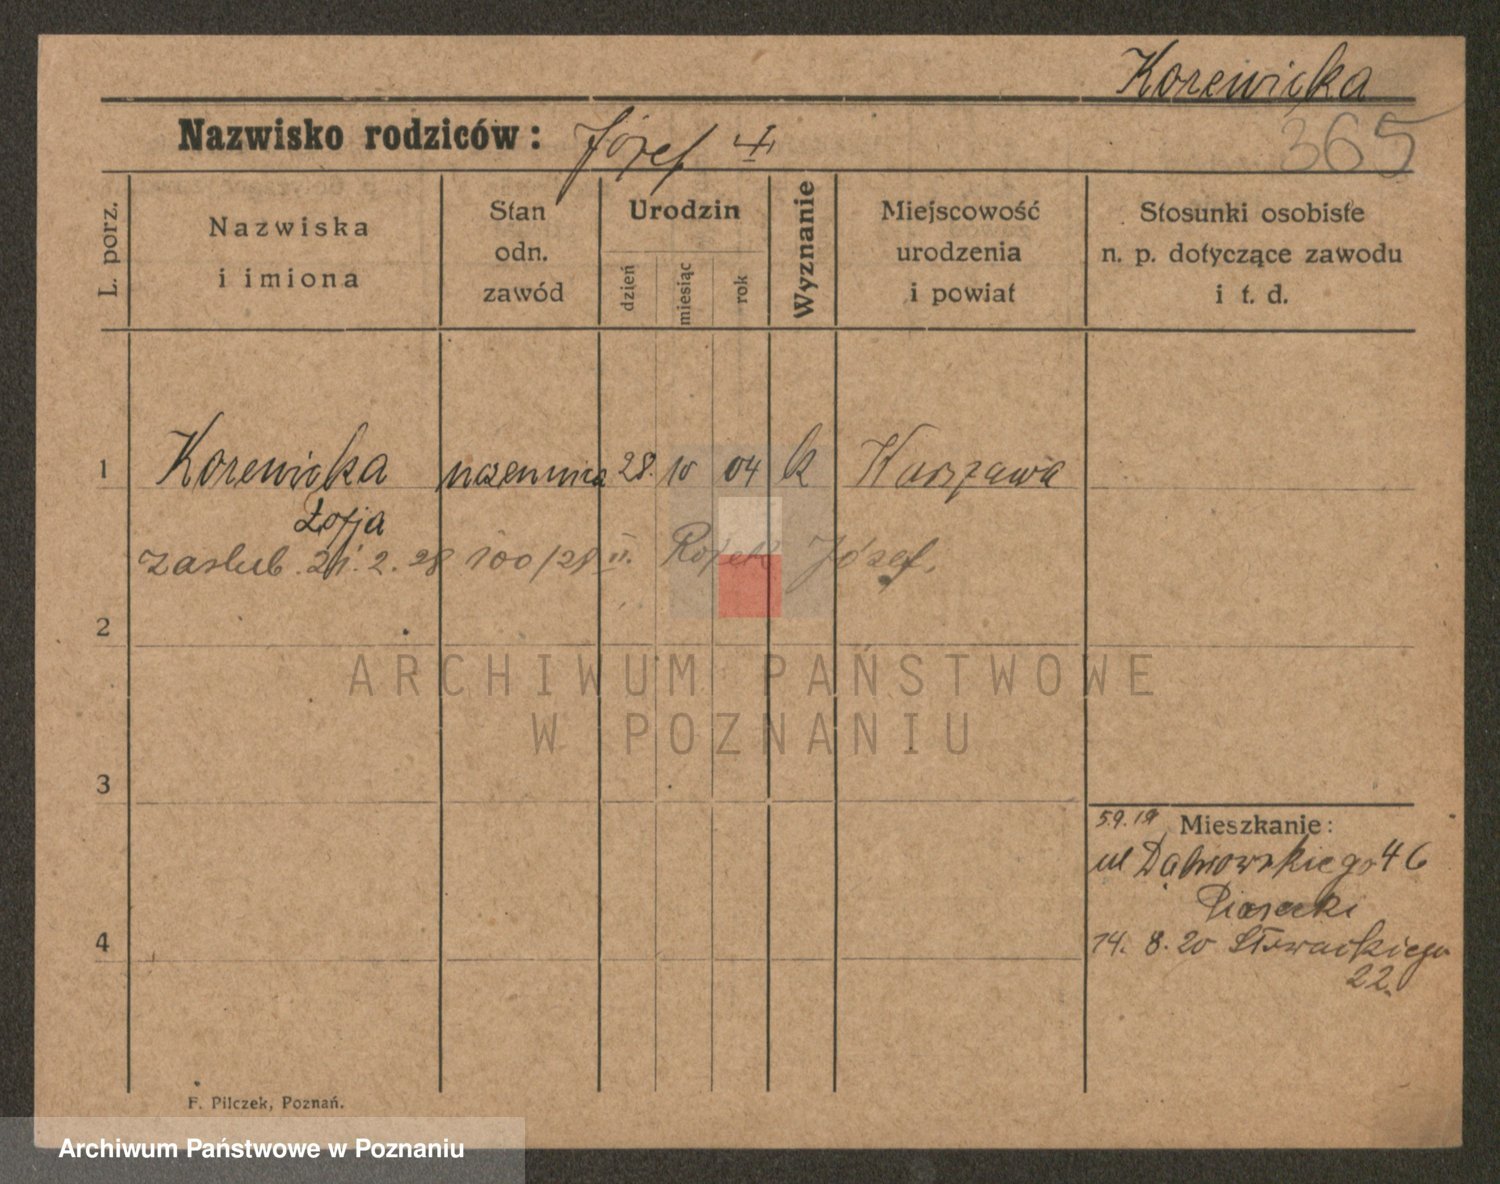 Korewicka
Nazwisko rodziców: Józef
365
L. porz.
Nazwiska
i imiona
Stan
odn.
zawód
Urodzin
dzień
miesiąc
rok
Wyznanie
Miejscowość
urodzenia
i powiat
Stosunki osobiste
n. p. dotyczące zawodu
i t. d.
1 Korewicka uczennica 28. 10 04 k Warszawa
Zofja
zaślub. 21. 2. 28 100/28 II. Rożek Józef.
2
ARCHIWUM PAŃSTWOWE
W POZNANIU
3
5.9.19 Mieszkanie:
ul Dąbrowskiego 46
Piasecki
4
14. 8. 20 Słowackiego
22.
F. Pilczek, Poznań.
Archiwum Państwowe w Poznaniu